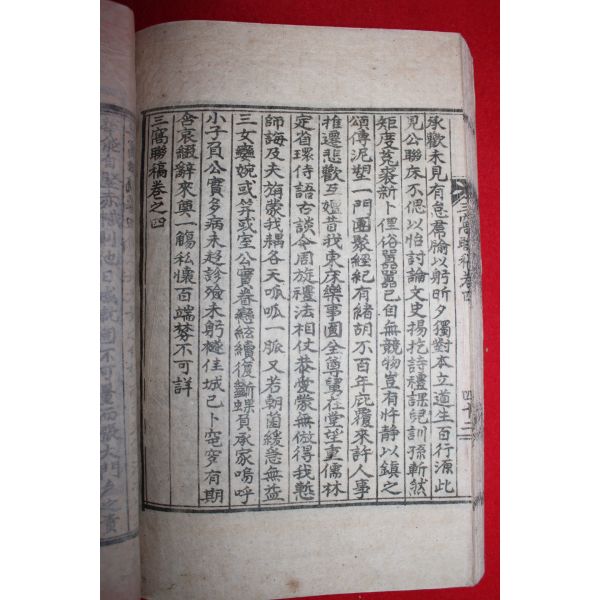 承歡未見有怠君腀以躬昕夕獨對本立道生百行源此
見公聯床不偲以怡討論文史揚挖詩禮課兒訓孫斬然
矩度菟裘新卜俚俗囂囂己自無競物豈有忤靜以鎮之
頌傳泥塑一門團聚經紀有緒胡不百年庇覆來許人事
推遷悲歡互嬗昔我東床樂事園全尊舅在堂望重儒林
定省環侍語古談今周旋禮法相仗恭愛蒙無倣得我慙
師誨及夫旃蒙我耦各天呱呱一脈又若朝菌緩急無益
三女孌婉或笄或室公實眷戀絃續復斷蜾負承家嗚呼
小子負公實多病未趍診殮未躬檖佳城已卜窀穸有期
含哀綴辭來奠一觴私懷百端棼不可詳
三窩聯稿卷之四
三窩聯稿 卷四
四十二